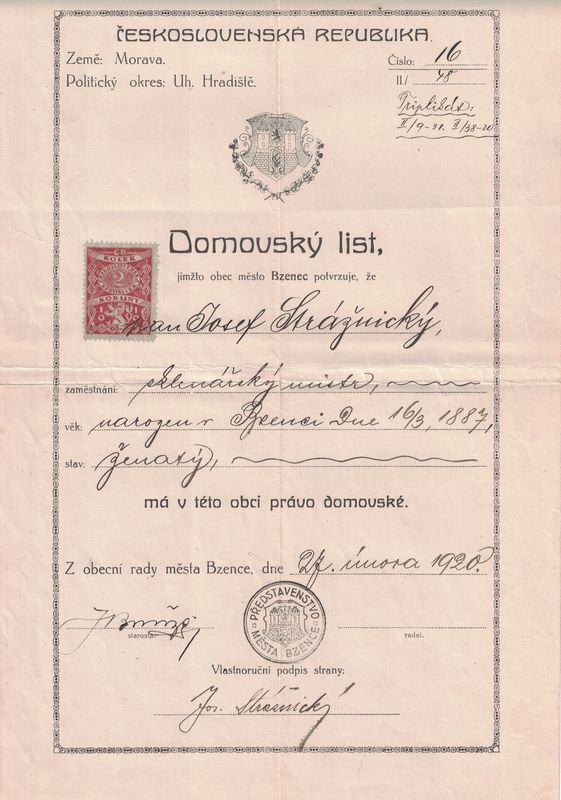 ČESKOSLOVENSKÁ REPUBLIKA.
Země: Morava.
Politický okres: Uh. Hradiště.
Číslo: 16
II./ 48
Triplikát:
II/9-31. II/38-20
Domovský list,
jímžto obec město Bzenec potvrzuje, že
ČR
KOLEK
2
KORUNY
pan Josef Strážnický,
zaměstnání: sklenářský mistr,
věk: narozen v Bzenci dne 16/3, 1887,
stav: ženatý,
má v této obci právo domovské.
Z obecní rady města Bzence, dne 27. února 1920.
PŘEDSTAVENSTVO
MĚSTA BZENCE
starosta.
radní.
Vlastnoruční podpis strany:
Jos. Strážnický